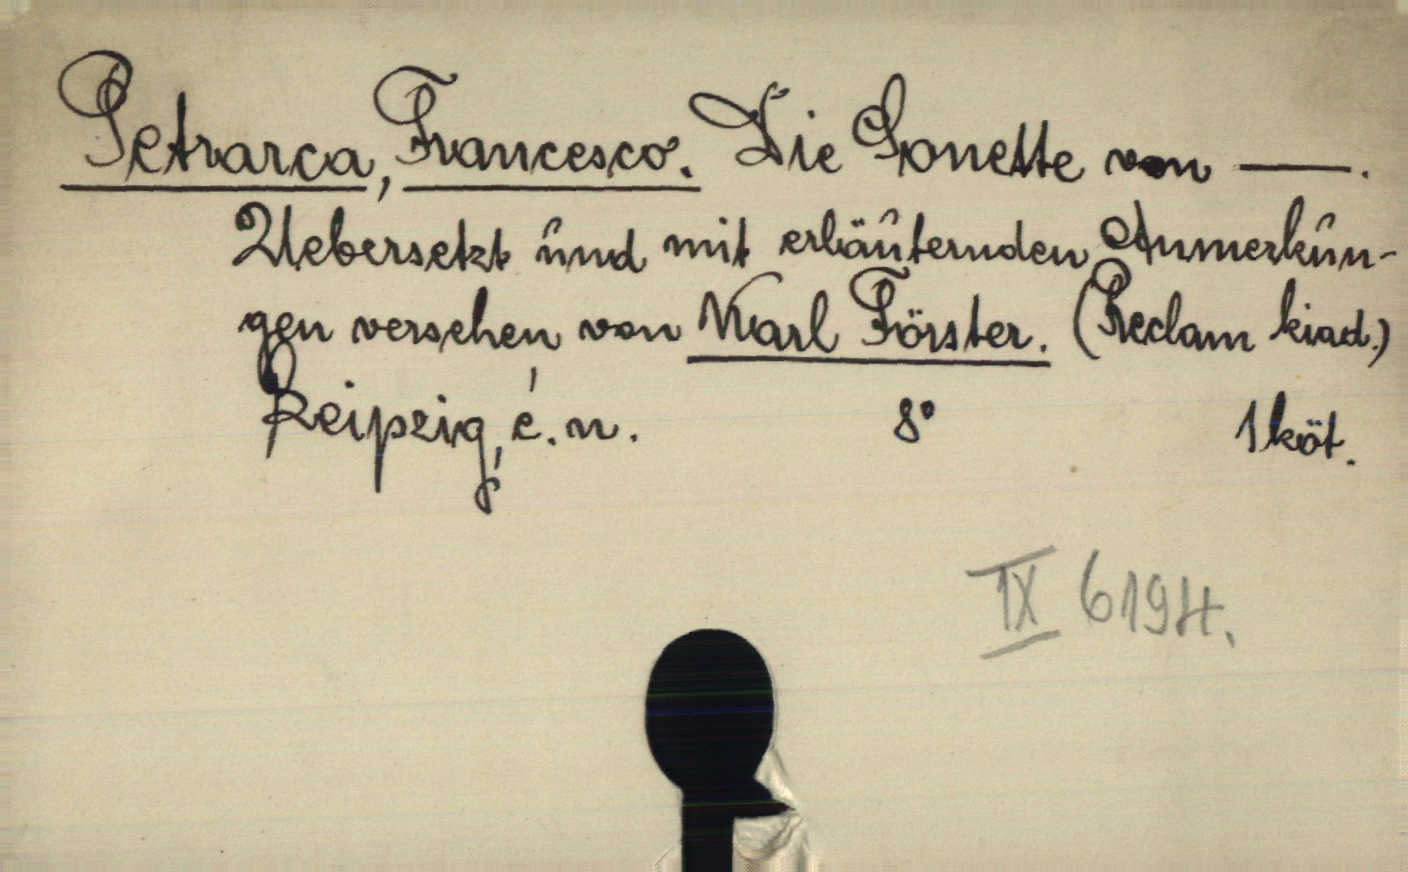 Petrarca, Francesco. Die Sonette von —.
Uebersetzt und mit erläuternden Anmerkun-
gen versehen von Karl Förster. (Reclam kiad.)
Leipzig, é. n. 8° 1 köt.
IX 6194.